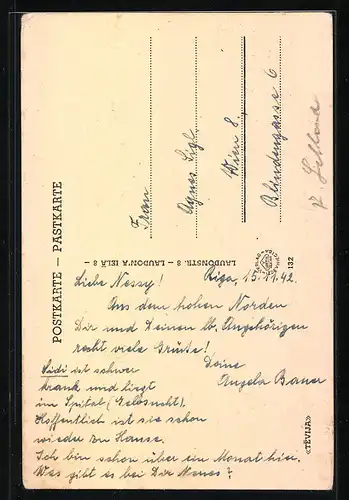 POSTKARTE – PASTKARTE
LAUDONSTR. 8 – LAUDON'A IELĀ 8 –
132
«TĒVIJA»
Frau
Agnes Sigl
Wien 8.
Blindengasse 6
Riga, 15.11.42.
Liebe Nessy!
Aus dem hohen Norden
Dir und Deinen lb. Angehörigen
recht viele Grüße!
Deine
Angela Bauer
ist schwer
krank und liegt
im Spital (Gelbsucht).
Hoffentlich ist sie schon
wieder zu Hause.
Ich bin schon über ein Monat hier.
Was gibt es bei Dir Neues?